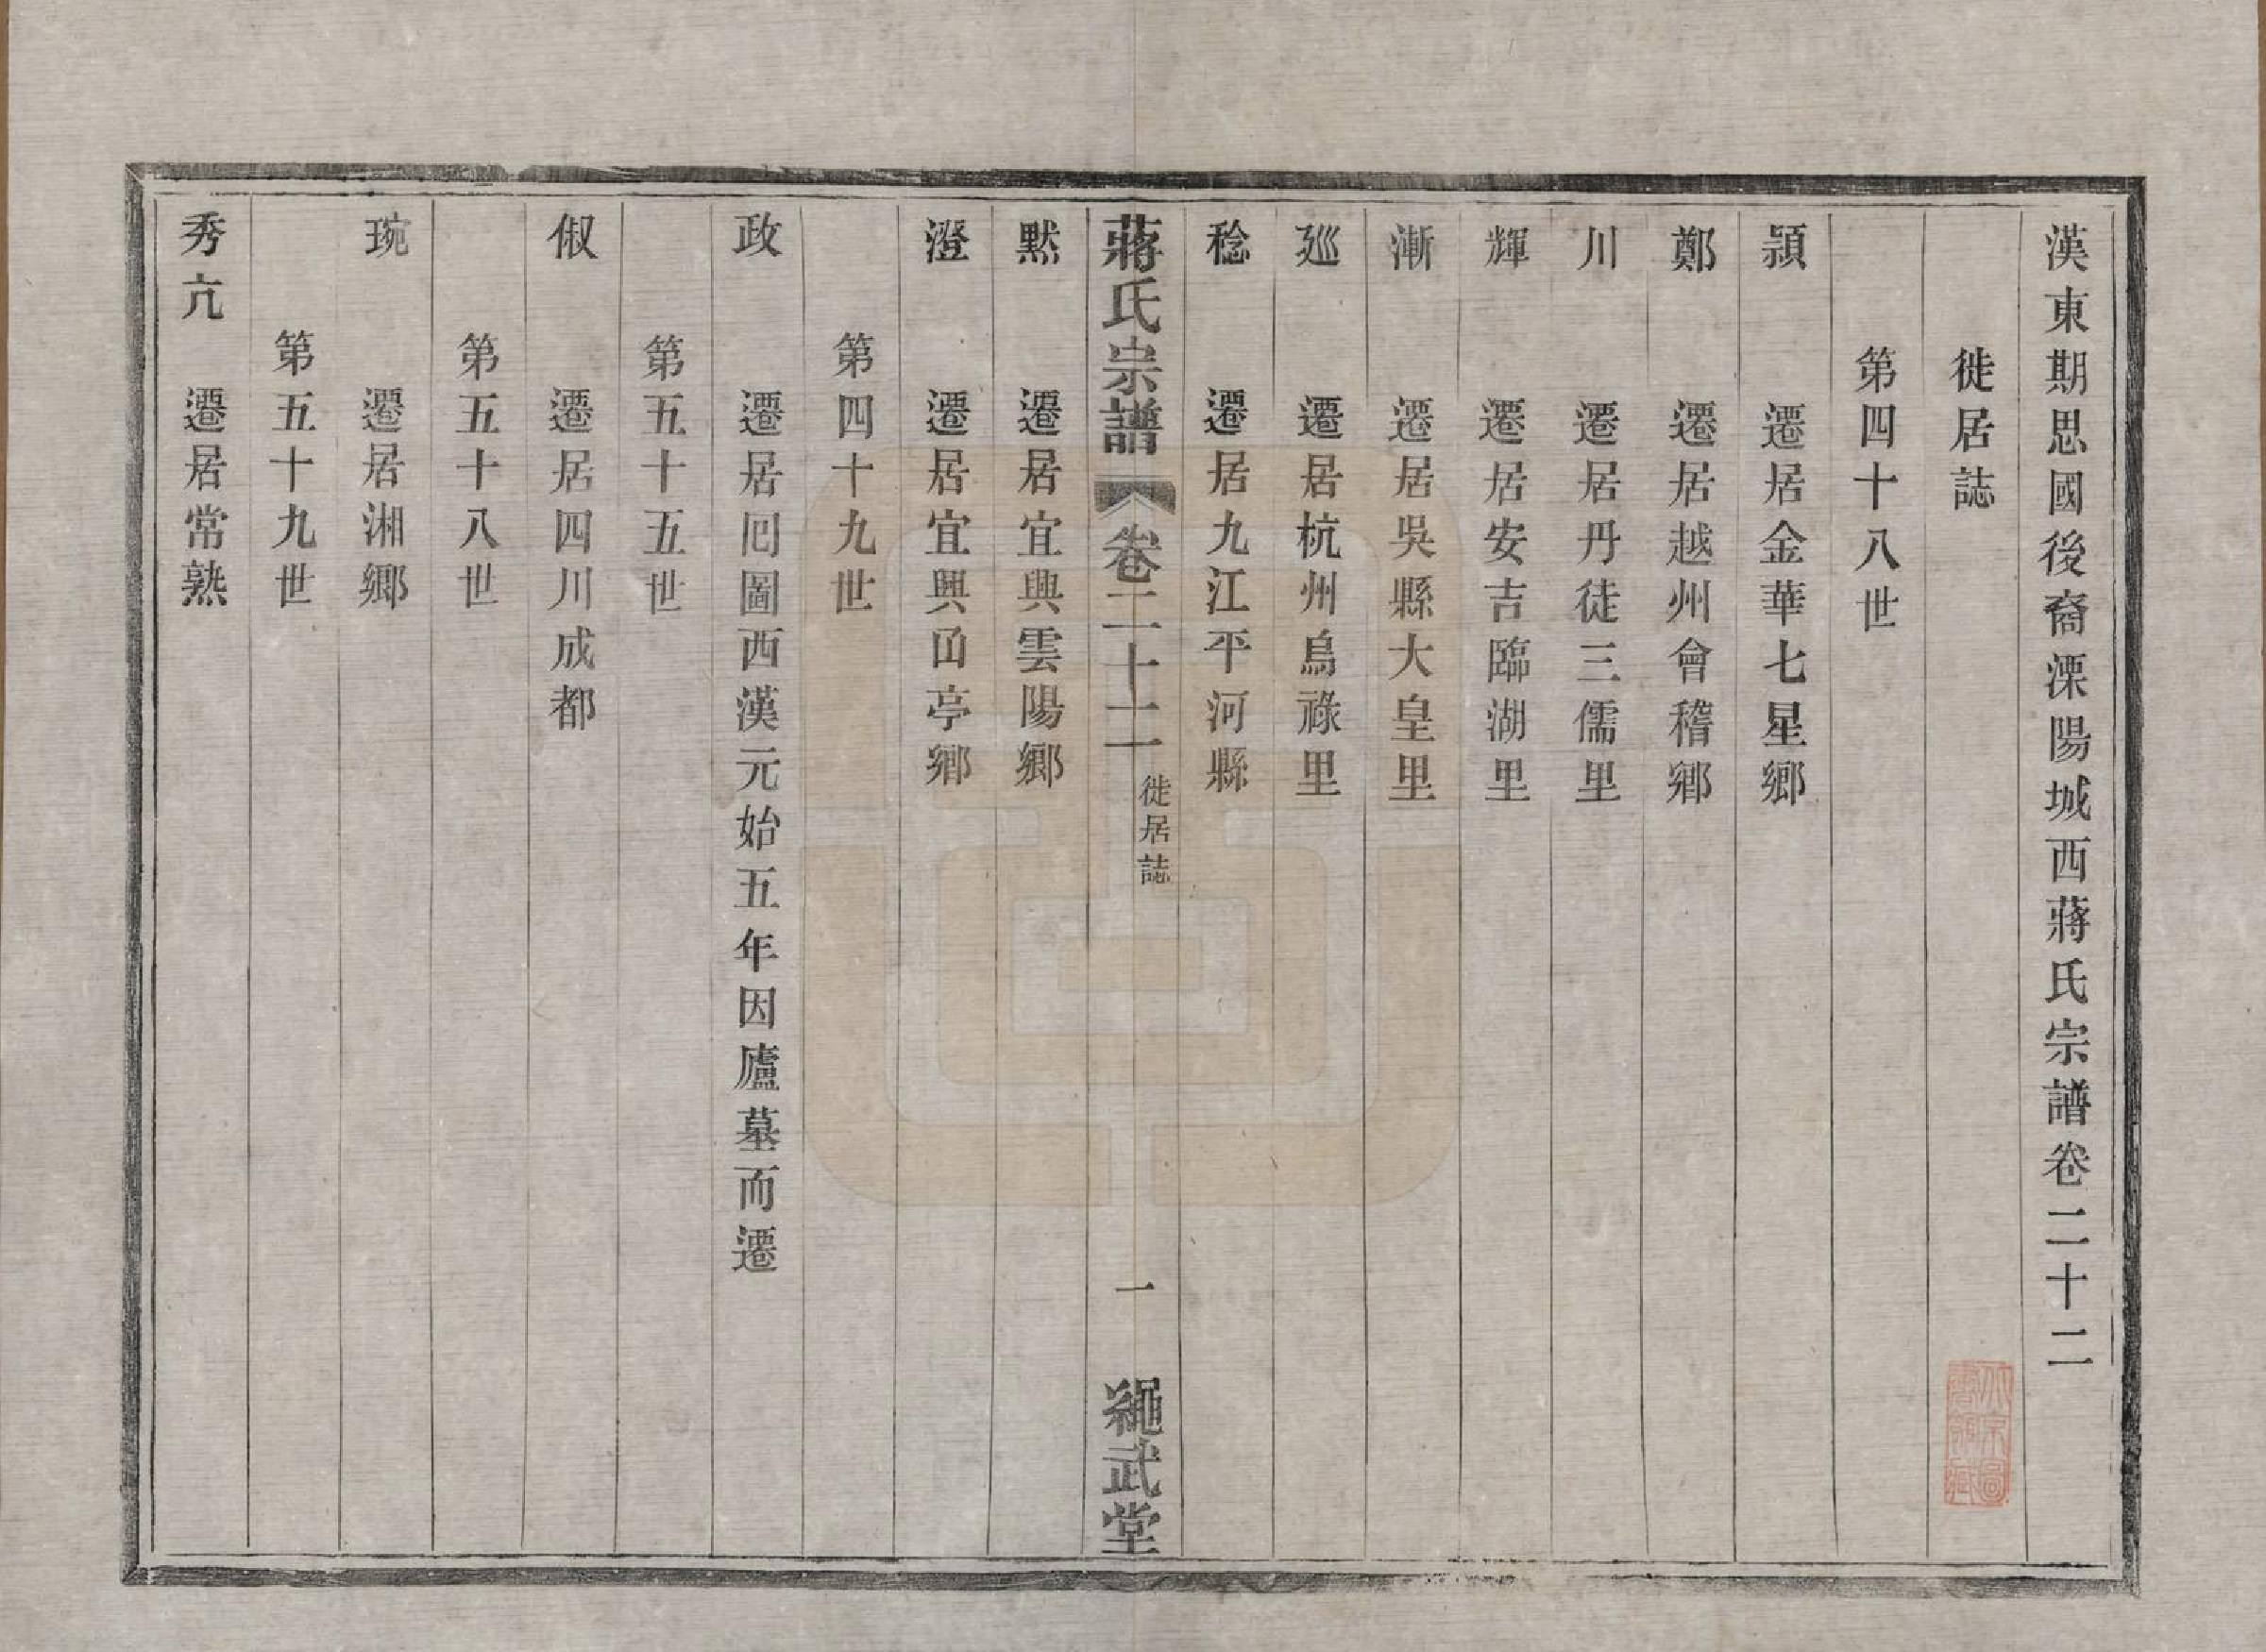 漢東期思國後裔溧陽城西蔣氏宗譜卷二十二
徙居誌
第四十八世
頴 遷居金華七星鄉
鄭 遷居越州會稽鄉
川 遷居丹徒三儒里
輝 遷居安吉臨湖里
漸 遷居吳縣大皇里
廵 遷居杭州烏祿里
稔 遷居九江平河縣
蔣氏宗譜 卷二十二 徙居誌 一 繩武堂
默 遷居宜興雲陽鄉
澄 遷居宜興凾亭鄉
第四十九世
政 遷居囘圖西漢元始五年因廬墓而遷
第五十五世
俶 遷居四川成都
第五十八世
琬 遷居湘鄉
第五十九世
秀亢 遷居常熟